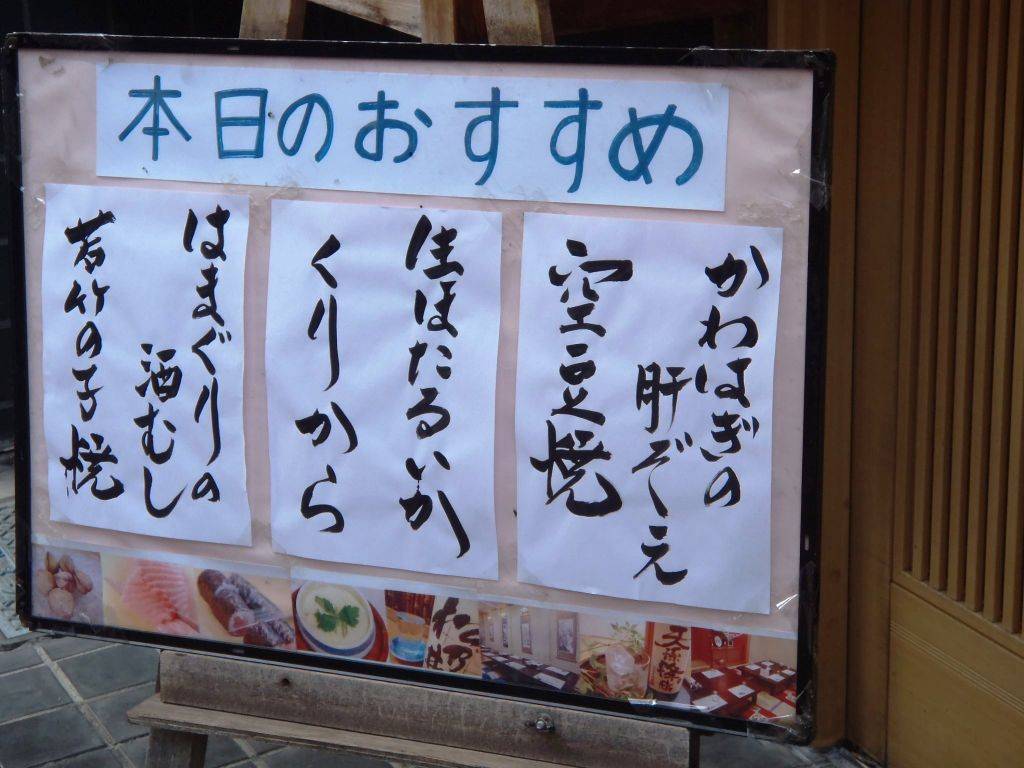 本日のおすすめ
かわはぎの
肝ぞえ
空豆焼
生ほたるいか
くりから
はまぐりの
酒むし
若竹の子焼